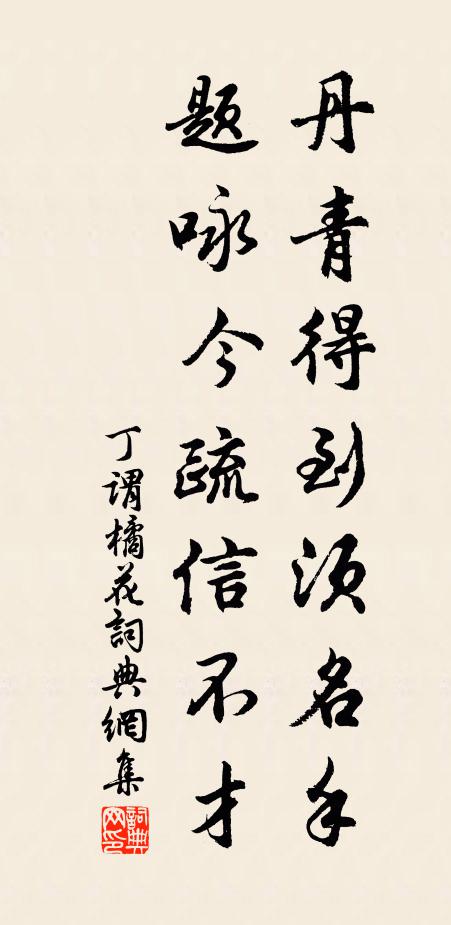 丹青得到须名手
题咏今疏信不才
丁谓橘花词典網集
詞典網印